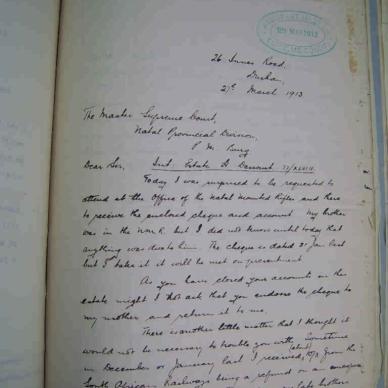 29 MAR 1913
26 Innes Road,
Durban,
27th March 1913
The Master Supreme Court,
Natal Provincial Division,
P. M. Burg
Dear Sir, Int. Estate
Today I was surprised to be requested to
attend at the Office of the Natal Mounted Rifles and here
to receive the enclosed cheque and account. My brother
was in the N.M.R. but I did not know until today that
anything was due to him. The cheque is dated 31 Jan last
but I take it it will be met on presentment.
As you have closed your accounts in the
estate might I ask that you endorse the cheque to
my mother and return it to me.
There is another little matter that I thought it
would not be necessary to trouble you with. Sometime
in December or January last I received (about) from the
South African Railways being a refund on a
late brother